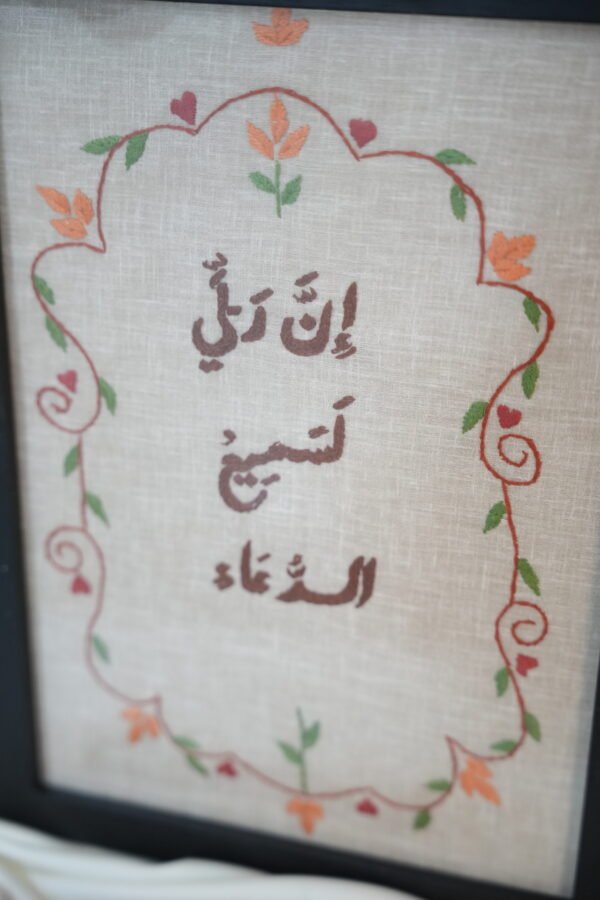 إِنَّ رَبِّي
لَسَمِيعُ
الدُّعَاء